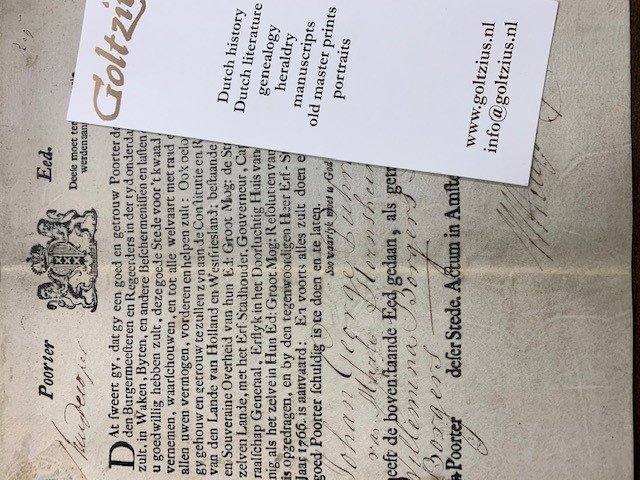 Goltzius
Dutch history
Dutch literature
genealogy
heraldry
manuscripts
old master prints
portraits
www.goltzius.nl
info@goltzius.nl
Poorter Eed.
Deese moet ter
werden aan
DAt sweert gy, dat gy een goed en getrouw Poorter de
den Burgermeesteren en Regeerders in der tyd onderda
zult, in Waken, Byten, en andere Beschermenissen en lasten
u goedwillig hebben zult, deze goede Stede voor 't kwaad
vernemen, waarschouwen, en tot alle welvaart met raad e
allen uwen vermogen, vorderen en helpen zult: Ook belo
gy gehouw en getrouw te zullen zyn aan de Constitutie en R
van den Lande van Holland en Westfriesland; bestaande
en Souveraine Overheid van hun Ed: Groot Mog: de St
zelven Lande, met het Erf-Stadhouder, Gouverneur, Cap
raalschap Generaal, Erflyk in het Doorluchtig Huis van
nig als het zelve in Hun Ed: Groot: Mog: Resolutien van
is opgedragen, en by den tegenwoordigen Heer Erf-S
Jaar 1766. is aanvaard: En voorts alles zult doen e
goed Poorter schuldig is te doen en te laten.
Soo waarlyk moet u God
Johan George
van
Willemina Borgers
heeft de bovenstaande Eed gedaan, als get
Borgers
Poorter deser Stede. Actum in Amste